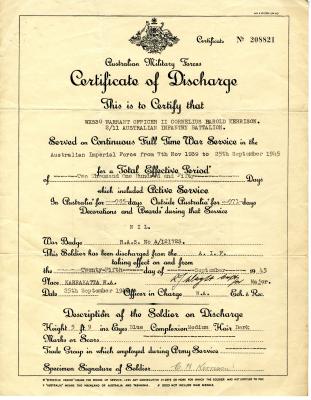 Certificate Nº 208821
Australian Military Forces
Certificate of Discharge
This is to Certify that
WARRANT OFFICER II CORNELIUS HAROLD KERRISON.
2/11 AUSTRALIAN INFANTRY BATTALION.
Served on Continuous Full Time War Service in the
Australian Imperial Force from 7th Nov 1939 to 25th September 1945
for a Total Effective Period
of Two Thousand One Hundred and Fifty Days
which included Active Service
In Australia for days Outside Australia for days
Decorations and Awards during that Service
NIL.
War Badge R.A.S. No A/121723.
This Soldier has been discharged from the A.I.F.
taking effect on and from
the Twenty-Fifth day of September 1945
Place KARRAKATTA W.A. Major.
Date 25th September 194 Officer in Charge W.A. Ech. & Rec.
Description of the Soldier on Discharge
Height 5 ft 9 ins Eyes Blue Complexion Medium Hair Dark
Marks or Scars
Trade Group in which employed during Army Service
Specimen Signature of Soldier C H Kerrison